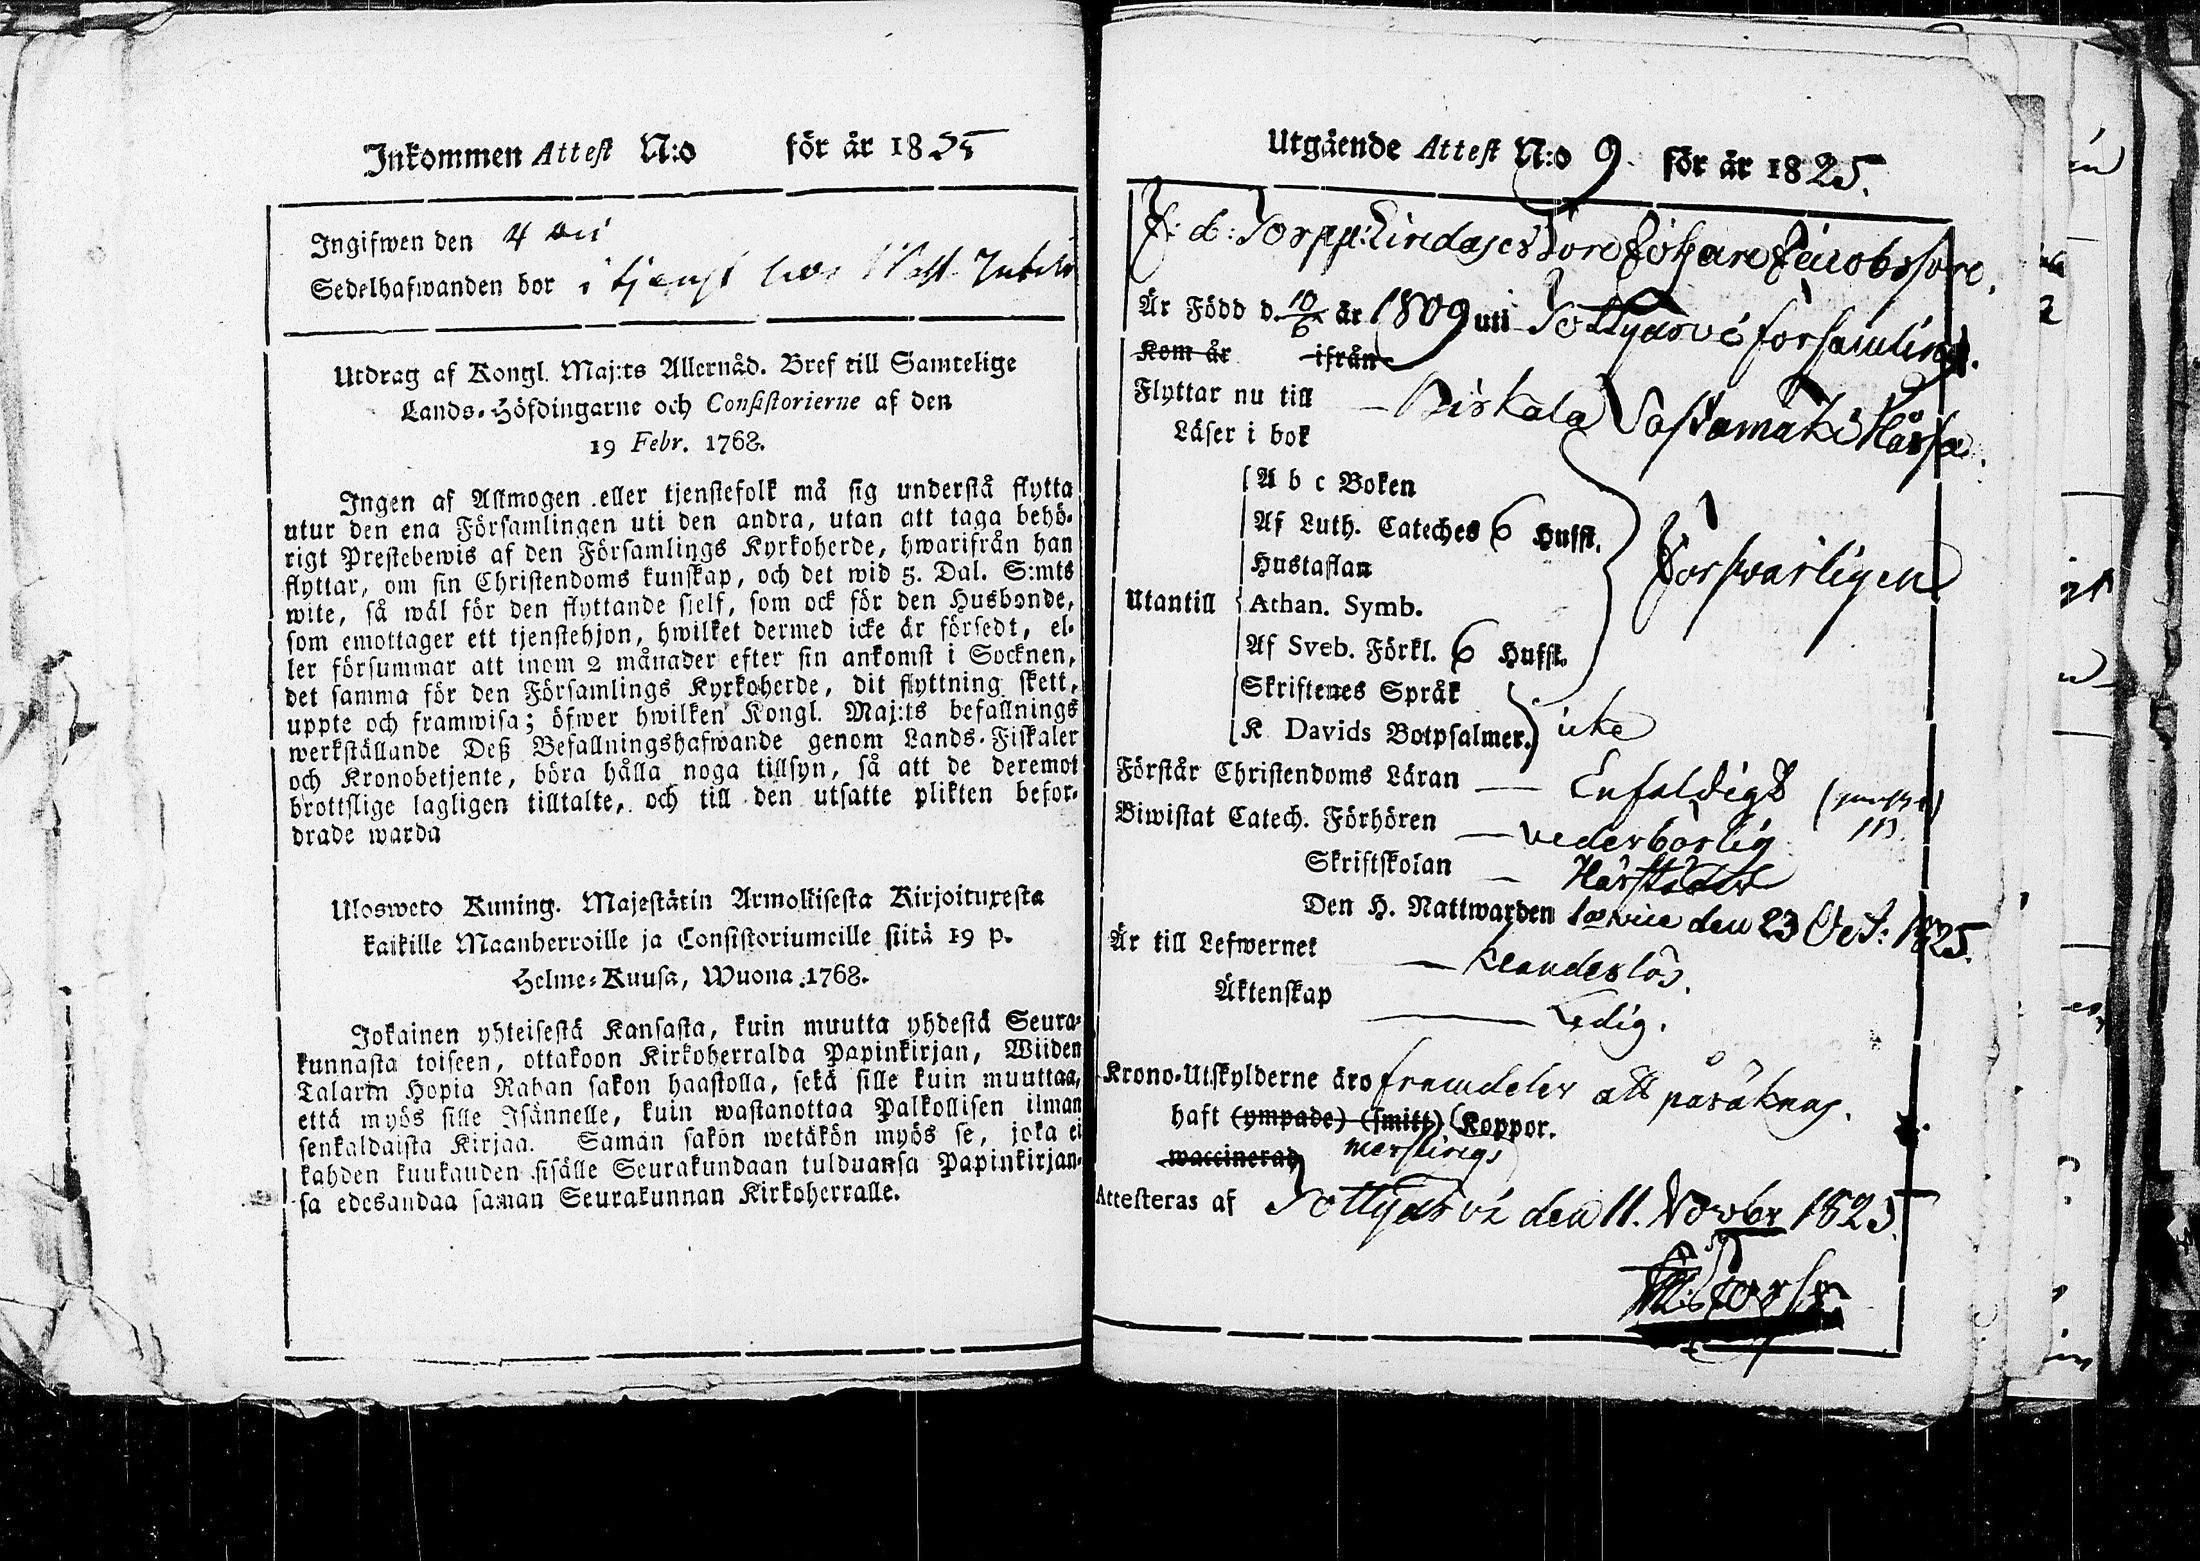 Inkommen Attest N:o för år 1825
Ingifwen den 4
Sedelhafwanden bor i tjenst hos
Utdrag af Kongl. Maj:ts Allernåd. Bref till Samtelige
Lands-Höfdingarne och Consistorierne af den
19 Febr. 1768.
Ingen af Allmogen eller tjenstefolk må sig understå flytta
utur den ena Församlingen uti den andra, utan att taga behö-
rigt Prestebewis af den Församlings Kyrkoherde, hwarifrån han
flyttar, om sin Christendoms kunskap, och det wid 5. Dal. S:mts
wite, så wäl för den flyttande sielf, som ock för den Husbonde,
som emottager ett tjenstehjon, hwilket dermed icke är försedt, el-
ler försummar att inom 2 månader efter sin ankomst i Socknen,
det samma för den Församlings Kyrkoherde, dit flyttning skett,
uppte och framwisa; öfwer hwilken Kongl. Maj:ts befallnings
werkställande Deß Befallningshafwande genom Lands-Fiskaler
och Kronobetjente, böra hålla noga tillsyn, så att de deremot
brottslige lagligen tilltalte, och till den utsatte plikten befor-
drade warda
Ulosweto Kuning. Majestätin Armollisesta Kirjoituxesta
kaikille Maanherroille ja Consistoriumeille siitä 19 p.
Helme-Kuusa, Wuona 1768.
Jokainen yhteisestä Kansasta, kuin muutta yhdestä Seura-
kunnasta toiseen, ottakoon Kirkoherralda Papinkirjan, Wiiden
Talarin Hopia Rahan sakon haastolla, sekä sille kuin muuttaa,
että myös sille Isännelle, kuin wastanottaa Palkollisen ilman
senkaldaista Kirjaa. Saman sakon wetäkön myös se, joka ei
kahden kuukauden sisälle Seurakundaan tulduansa Papinkirjan-
sa edesandaa saman Seurakunnan Kirkoherralle.
Utgående Attest N:o 9. för år 1825.
F: d: Torpp: Lindases Son Johan Jacobsson.
Är Född d. 10/6 år 1809 uti Tottijärvi församling.
Kom år ifrån
Flyttar nu till Birkala Sastamäki Härfa.
Läser i bok
A b c Boken
Af Luth. Cateches 6 Hufst. Försvarligen
Hustaflan
Utantill Athan. Symb.
Af Sveb. Förkl. 6 Hufst.
Skriftenes Språk
K Davids Botpsalmer. icke
Förstår Christendoms Läran Enfaldigt
Biwistat Catech. Förhören vederbörlig
Skriftskolan Härstädes
Den H. Nattwarden 1a vice den 23 Oct: 1825.
Är till Lefwernet Klanderlös.
Äktenskap Ledig.
Krono-Utskylderne äro framdeles att påräknas.
haft (ympade) (smitt) Koppor.
waccinerad
Attesteras af Tottijärvi den 11. Novbr 1825.